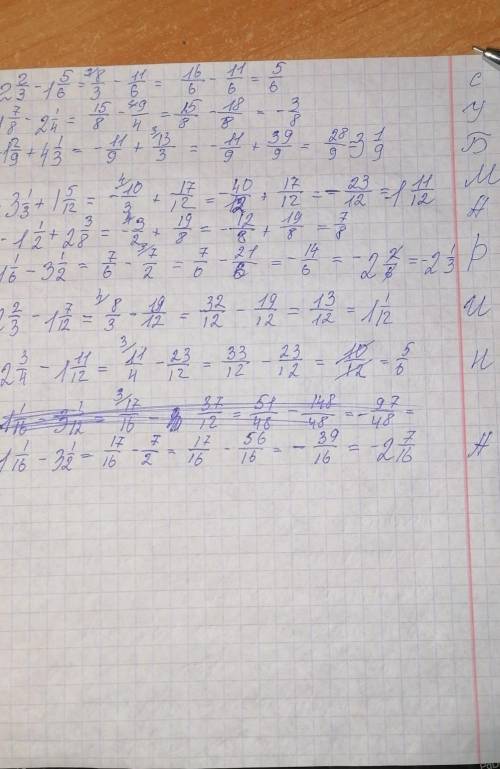 2 2/3 - 1 5/6 = 8/3 - 11/6 = 16/6 - 11/6 = 5/6 С
1 7/8 - 2 1/4 = 15/8 - 9/4 = 15/8 - 18/8 = -3/8 У
-1 2/9 + 4 1/3 = -11/9 + 13/3 = -11/9 + 39/9 = 28/9 = 3 1/9 Б
-3 1/3 + 1 5/12 = -10/3 + 17/12 = -40/12 + 17/12 = -23/12 = -1 11/12 М
-1 1/2 + 2 3/8 = -3/2 + 19/8 = -12/8 + 19/8 = 7/8 А
1 1/6 - 3 1/2 = 7/6 - 7/2 = 7/6 - 21/6 = -14/6 = -2 2/6 = -2 1/3 Р
2 2/3 - 1 7/12 = 8/3 - 19/12 = 32/12 - 19/12 = 13/12 = 1 1/12 И
2 3/4 - 1 11/12 = 11/4 - 23/12 = 33/12 - 23/12 = 10/12 = 5/6 Н
1 1/16 - 3 1/12 = 17/16 - 37/12 = 51/48 - 148/48 = -97/48 =
1 1/16 - 3 1/2 = 17/16 - 7/2 = 17/16 - 56/16 = -39/16 = -2 7/16 А